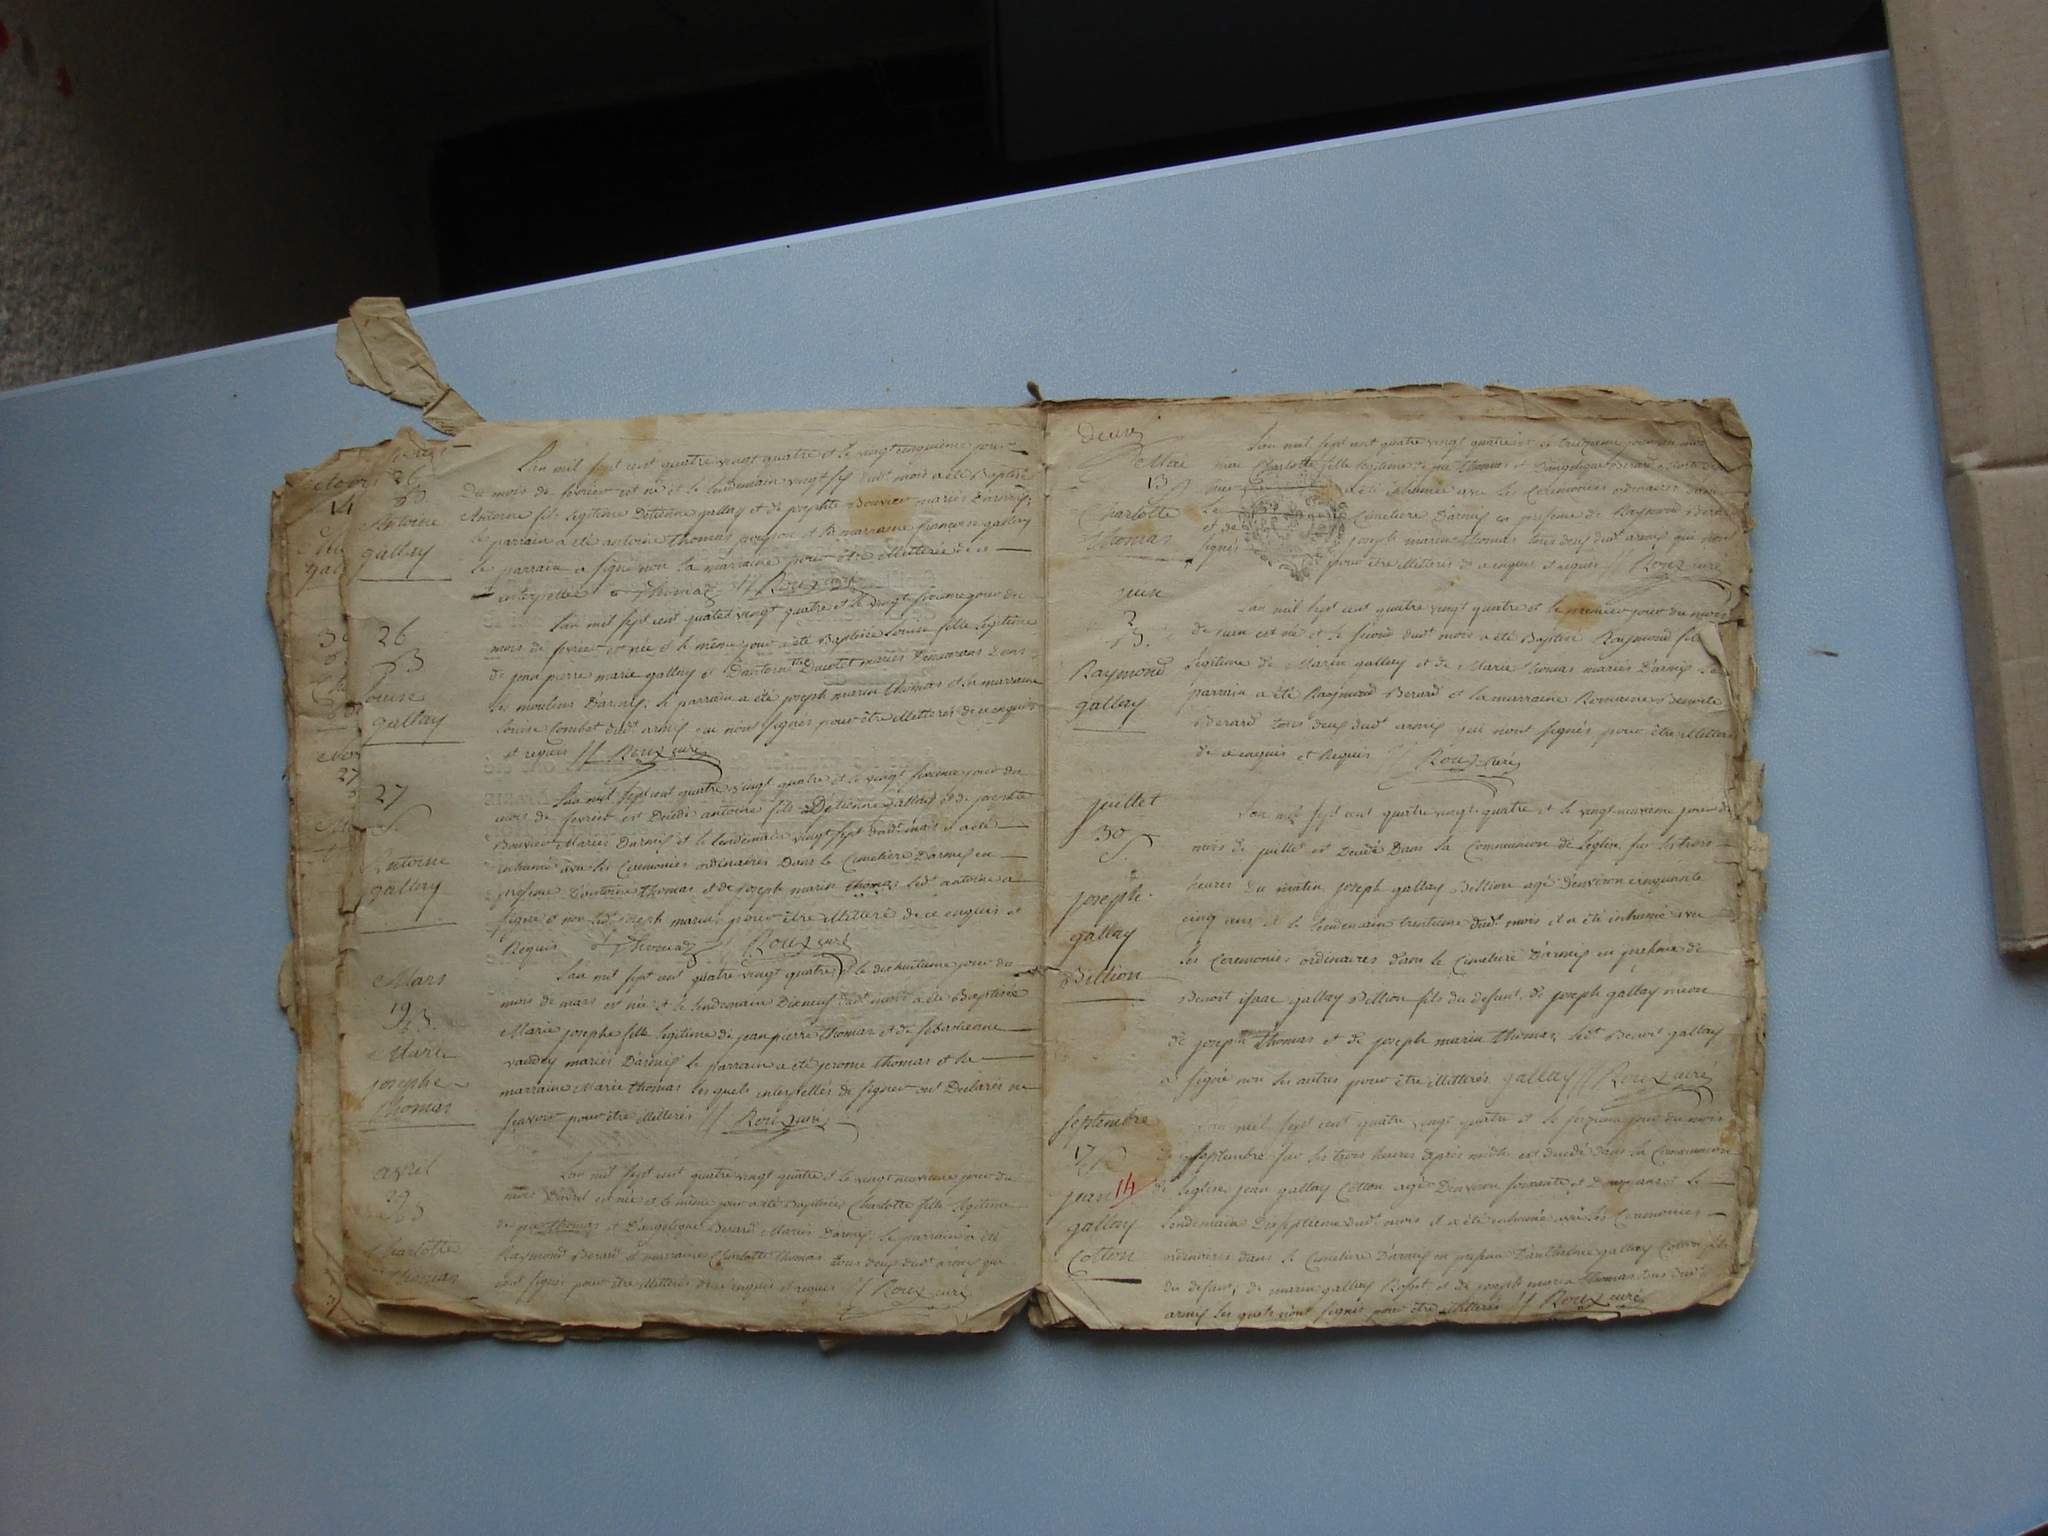 fevrier
26
B
Antoine
gallay
L'an mil sept cent quatre vingt quatre et le vingt cinquieme jour
Du mois de fevrier est né et le lendemain vingt six dud.t mois a été Baptisé
Antoine fils legitime D'etienne gallay et de josephte Bouvier mariés
le parrain a été antoine thomas et la marraine françoise gallay
le parrain a signé non la marraine pour être illitterée de ce
interpellée Thomas // Roux curé
26
B
Louise
gallay
L'an mil sept cent quatre vingt quatre et le vingt sixieme jour du
mois de fevrier est née et le même jour a été Baptisée Louise fille legitime
de jean pierre marie gallay et D'antoin.tte Ducret mariés Demeurans dans
les moulins le parrain a été joseph marin thomas et la marraine
louise Combet dud.t qui n'ont signés pour être illitterés de ce enquis
et requis // Roux curé
27
S.
Antoine
gallay
L'an mil sept cent quatre vingt quatre et le vingt sixieme jour du
mois de fevrier est Decedé antoine fils D'etienne gallay et de josephte
Bouvier Mariés et le lendemain vingt sept dud.t mois il a été
inhumé avec les Ceremonies ordinaires Dans le Cimetière en
presence D'antoine thomas et de joseph marin thomas led.t antoine a
signé et non led.t joseph marin, pour être illitteré de ce enquis et
Requis Thomas // Roux curé
Mars
19
B.
Marie
josephe
thomas
L'an mil sept cent quatre vingt quatre et le dix huitieme jour du
mois de mars est née et le lendemain Dixneuf dud.t mois a été Baptisée
Marie josephe fille legitime de jean pierre thomas et de sebastienne
vaudey mariés le parrain a été jerome thomas et la
marraine Marie thomas les quels interpellés de signer ont Declarés ne
sçavoir pour être illiterés // Roux curé
avril
29
B
Charlotte
thomas
L'an mil sept cent quatre vingt quatre et le vingt neuvieme jour du
mois D'avril est née et le même jour a été Baptisée Charlotte fille legitime
de thomas et D'angelique Berard Mariés le parrain a été
Raymond Berard et marraine Charlotte thomas tous deux dud.t qui
n'ont signés pour être illitterés de ce enquis et requis // Roux curé
Deux
Mai
13
S
Charlotte
thomas
L'an mil sept cent quatre vingt quatre et le treizieme jour du mois
mai Charlotte fille legitime de thomas et D'angelique Berard
a été inhumée avec les Ceremonies ordinaires dans
le Cimetiere en presence de Raymond Berard
et de joseph marin thomas tous deux dud.t qui n'ont
signés pour être illiterés de ce enquis et requis // Roux curé
juin
2
B.
Raymond
gallay
L'an mil sept cent quatre vingt quatre et le premier jour du mois
de juin est né et le second dud.t mois a été Baptisé Raymond fils
legitime de Marin gallay et de Marie thomas mariés le
parrain a été Raymond Berard et la marraine Romaine
Berard tous deux dud.t qui n'ont signés pour être illitterés
de ce enquis et Requis // Roux curé
juillet
30
S.
joseph
gallay
Billion
L'an mil sept cent quatre vingt quatre et le vingt neuvieme jour du
mois de juillet est Decedé Dans la Communion de l'eglise sur les trois
heures du matin joseph gallay Billion agé d'environ cinquante
cinq ans et le lendemain trentieme dud.t mois il a été inhumé avec
les Ceremonies ordinaires dans le Cimetiere en presence de
Benoit isaac gallay Billion fils du defunt, de joseph gallay
de joseph thomas et de joseph marin thomas, led.t Benoit gallay
a signé non les autres pour être illitterés gallay // Roux curé
septembre
17
S
jean 14
gallay
Cotton
L'an mil sept cent quatre vingt quatre et le seizieme jour du mois
de septembre sur les trois heures après midi est decedé dans la Communion
de l'eglise jean gallay Cotton agé D'environ soixante et ans et le
lendemain Dixseptieme dud.t mois il a été inhumé avec les Ceremonies
ordinaires dans le Cimetiere en presence D'anthelme gallay Cotton fils
du defunt, de marin gallay et de joseph marin thomas tous dud.t
les quels n'ont signés pour être illitterés // Roux curé